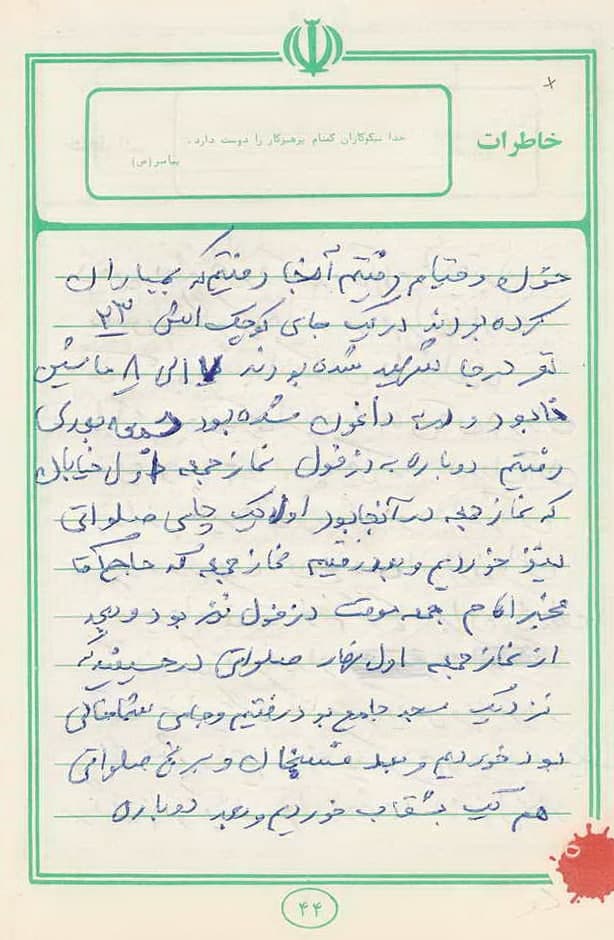 خاطرات
خدا نیکوکاران گمنام پرهیزکار را دوست دارد.
پیامبر (ص)
رفتیم آنجا رفتیم که بمباران
کرده بودند در یک جای کوچک ۲۳
نفر درجا شهید شده بودند ۷ الی ۸ ماشین
بود داغون شده بود
رفتیم دوباره به دزفول نماز جمعه اول خیابان
که نماز جمعه در آنجا بود اول یک چایی صلواتی
نیز خوردیم و بعد رفتیم نماز جمعه که حاج آقا
مخبر امام جمعه موقت دزفول نیز بود و بعد
از نماز جمعه اول نهار صلواتی در حسینیه که
نزدیک مسجد جامع بود رفتیم و جای شما خالی
بود خوردیم و بعد و برنج صلواتی
هم یک بشقاب خوردیم و بعد دوباره
۴۴